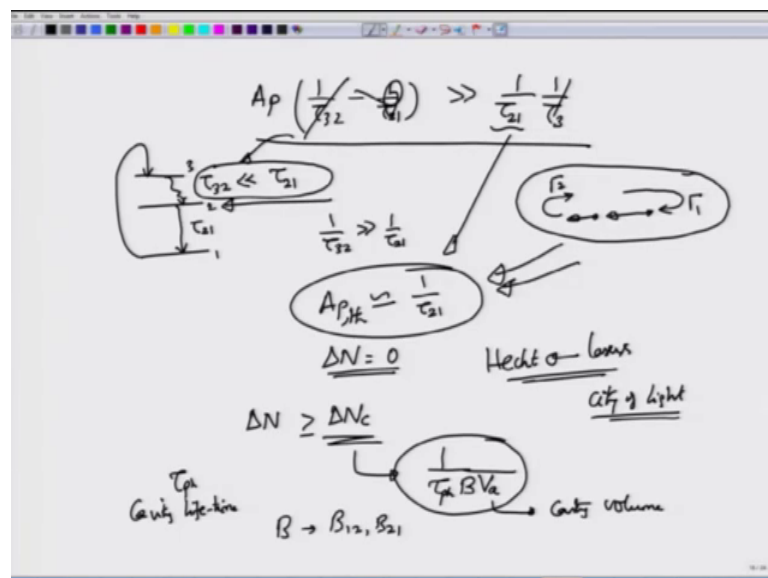 Ap ( 1/τ32 − 1/τ21 ) >> 1/τ21 1/τ3
3
τ32 << τ21
2
τ21
1
1/τ32 >> 1/τ21
Γ2
Γ1
Ap,th ≃ 1/τ21
ΔN = 0
Hecht lasers
City of Light
ΔN ≥ ΔNc
1/τph B Va
τph
Cavity life-time
cavity volume
B → B12, B21